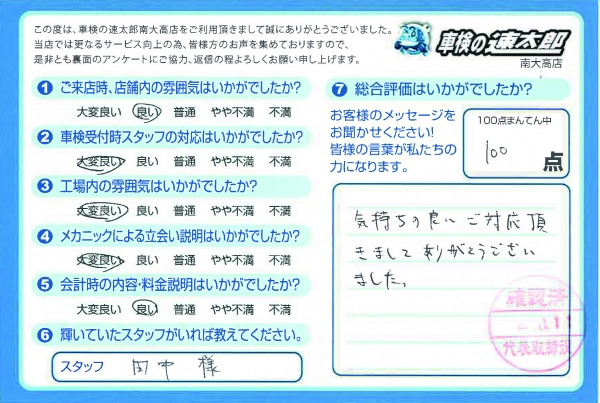 この度は、車検の速太郎南大高店をご利用頂きまして誠にありがとうございました。
当店では更なるサービス向上の為、皆様方のお声を集めておりますので、
是非とも裏面のアンケートにご協力、返信の程よろしくお願い申し上げます。
車検の速太郎
南大高店
1 ご来店時、店舗内の雰囲気はいかがでしたか?
大変良い 良い 普通 やや不満 不満
2 車検受付時スタッフの対応はいかがでしたか?
大変良い 良い 普通 やや不満 不満
3 工場内の雰囲気はいかがでしたか?
大変良い 良い 普通 やや不満 不満
4 メカニックによる立会い説明はいかがでしたか?
大変良い 良い 普通 やや不満 不満
5 会計時の内容・料金説明はいかがでしたか?
大変良い 良い 普通 やや不満 不満
6 輝いていたスタッフがいれば教えてください。
スタッフ 田中 様
7 総合評価はいかがでしたか?
お客様のメッセージを
お聞かせください!
皆様の言葉が私たちの
力になります。
100点まんてん中
100
点
気持ちの良いご対応頂
きまして ありがとうござい
ました。
確認済
代表取締役